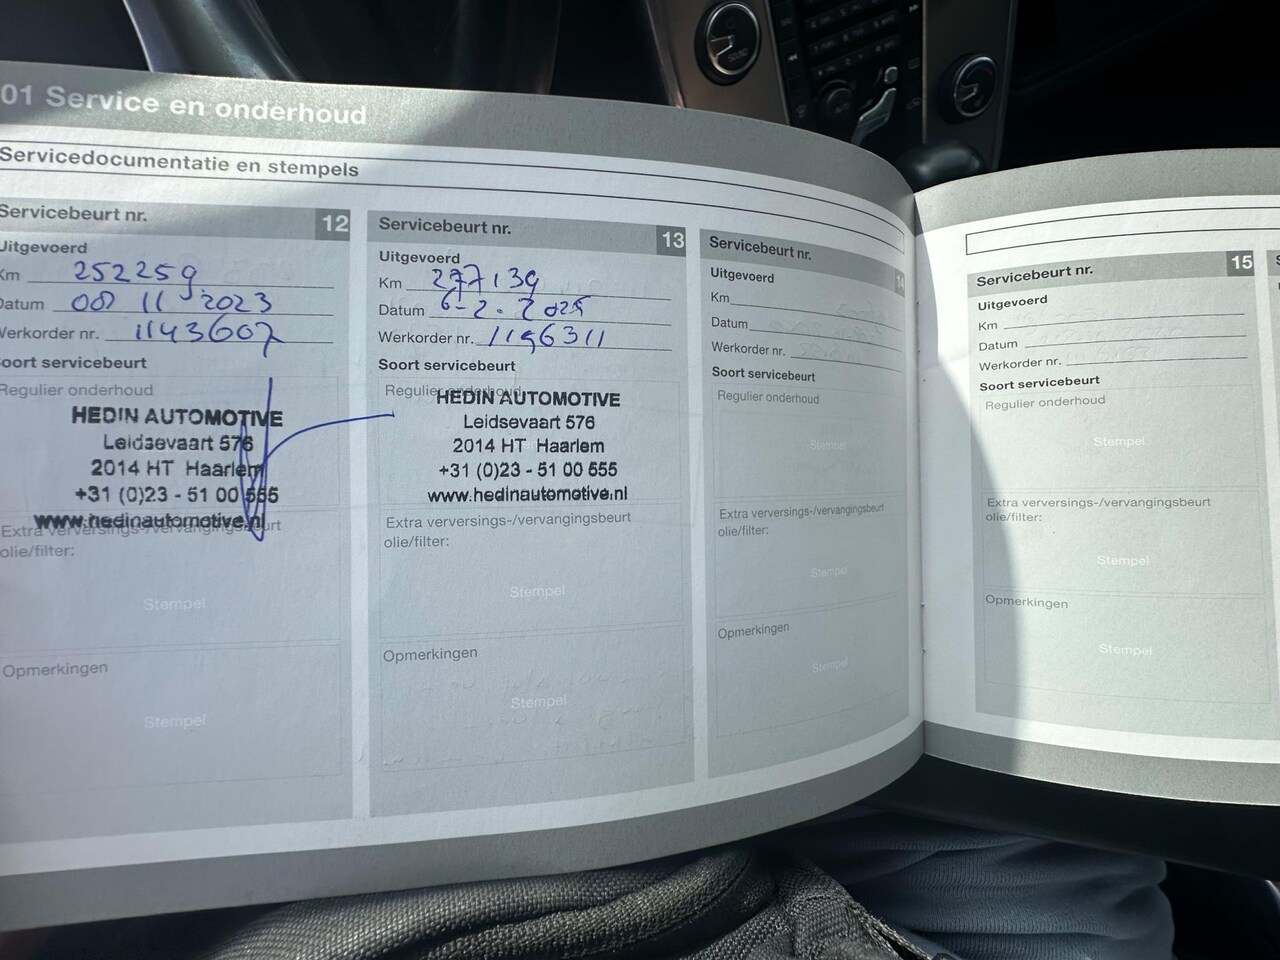 01 Service en onderhoud
Servicedocumentatie en stempels
Servicebeurt nr. 12
Uitgevoerd
Km 252259
Datum 08 11 2023
Werkorder nr. 1143607
Soort servicebeurt
Regulier onderhoud
HEDIN AUTOMOTIVE
Leidsevaart 576
2014 HT Haarlem
+31 (0)23 - 51 00 555
www.hedinautomotive.nl
Extra verversings-/vervangingsbeurt
olie/filter:
Stempel
Opmerkingen
Stempel
Servicebeurt nr. 13
Uitgevoerd
Km 277139
Datum 6-2-2025
Werkorder nr. 1196311
Soort servicebeurt
Regulier onderhoud
HEDIN AUTOMOTIVE
Leidsevaart 576
2014 HT Haarlem
+31 (0)23 - 51 00 555
www.hedinautomotive.nl
Extra verversings-/vervangingsbeurt
olie/filter:
Stempel
Opmerkingen
Stempel
Servicebeurt nr. 14
Uitgevoerd
Km
Datum
Werkorder nr.
Soort servicebeurt
Regulier onderhoud
Stempel
Extra verversings-/vervangingsbeurt
olie/filter:
Stempel
Opmerkingen
Stempel
Servicebeurt nr. 15
Uitgevoerd
Km
Datum
Werkorder nr.
Soort servicebeurt
Regulier onderhoud
Stempel
Extra verversings-/vervangingsbeurt
olie/filter:
Stempel
Opmerkingen
Stempel
SOUND